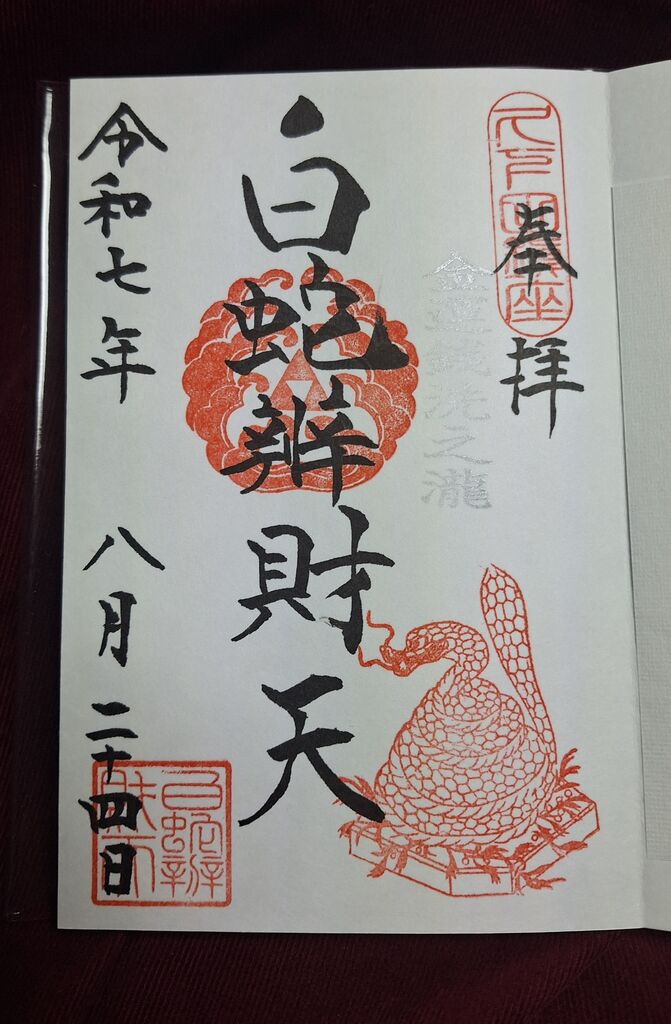 奉拝
久下田鎮座
金運銭洗之瀧
白蛇辨財天
令和七年 八月二十四日
白蛇辨財天